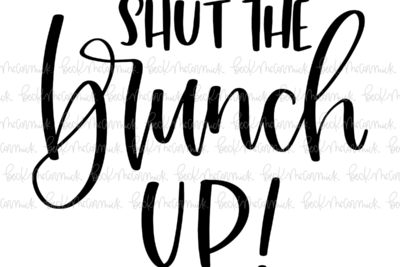 SHUT THE
brunch
UP!